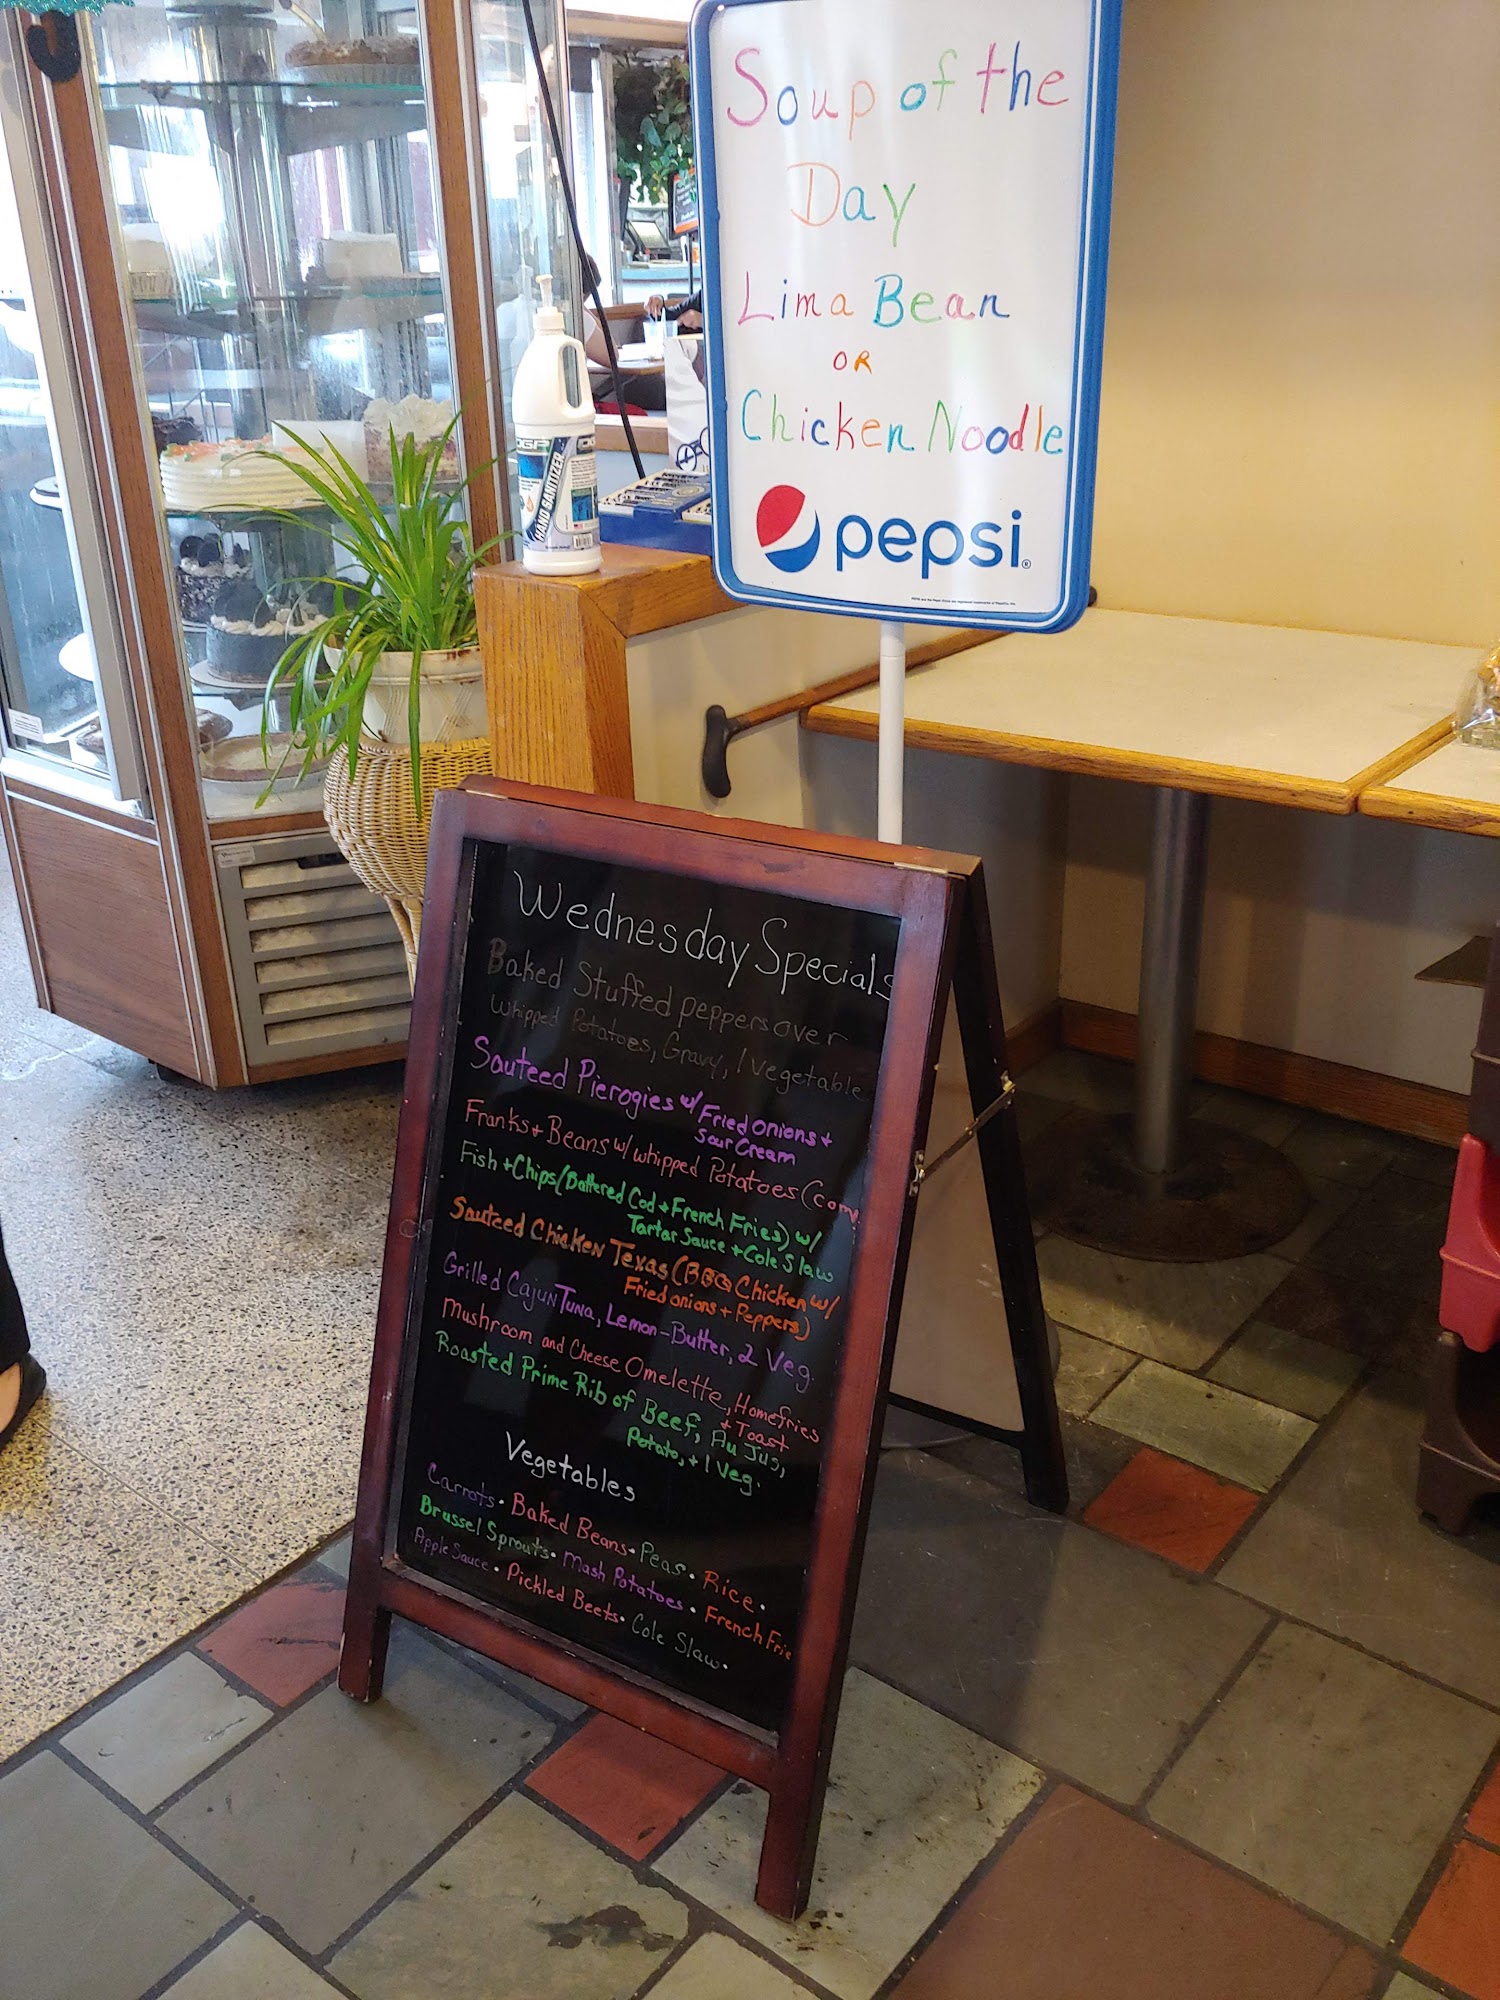 Soup of the
Day
Lima Bean
OR
Chicken Noodle
pepsi
HAND SANITIZER
Wednesday Specials
Baked Stuffed peppers over
whipped Potatoes, Gravy, 1 vegetable
Sauteed Pierogies w/ Fried onions +
Sour Cream
Franks + Beans w/ whipped Potatoes (com
Fish + Chips (Battered Cod + French Fries) w/
Tartar Sauce + Cole Slaw
Sauteed Chicken Texas (BBQ Chicken w/
Fried onions + Peppers)
Grilled Cajun Tuna, Lemon-Butter, 2 Veg.
Mushroom and Cheese Omelette, Homefries
+ Toast
Roasted Prime Rib of Beef, Au Jus,
Potato, + 1 Veg.
Vegetables
Carrots • Baked Beans • Peas • Rice •
Brussel Sprouts • Mash Potatoes • French Frie
Apple Sauce • Pickled Beets • Cole Slaw •